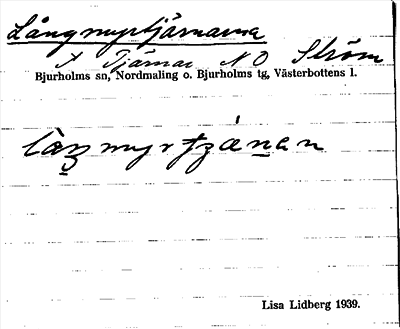 Långmyrtjärnarna
Tjärnar N O Ström
Bjurholms sn, Nordmaling o. Bjurholms tg, Västerbottens l.
Lisa Lidberg 1939.